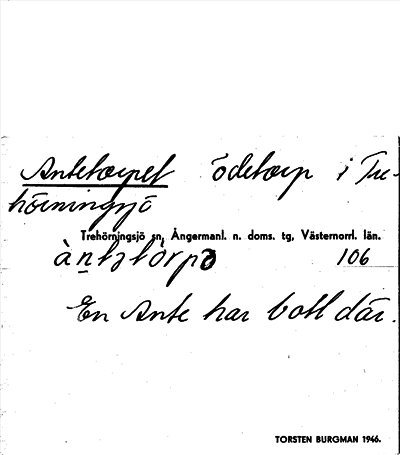 Antetorpet ödetorp i Tre-
hörningsjö
Trehörningsjö sn, Ångermanl. n. doms. tg, Västernorrl. län.
àntətòrpə 106
En Ante har bott där.
TORSTEN BURGMAN 1946.